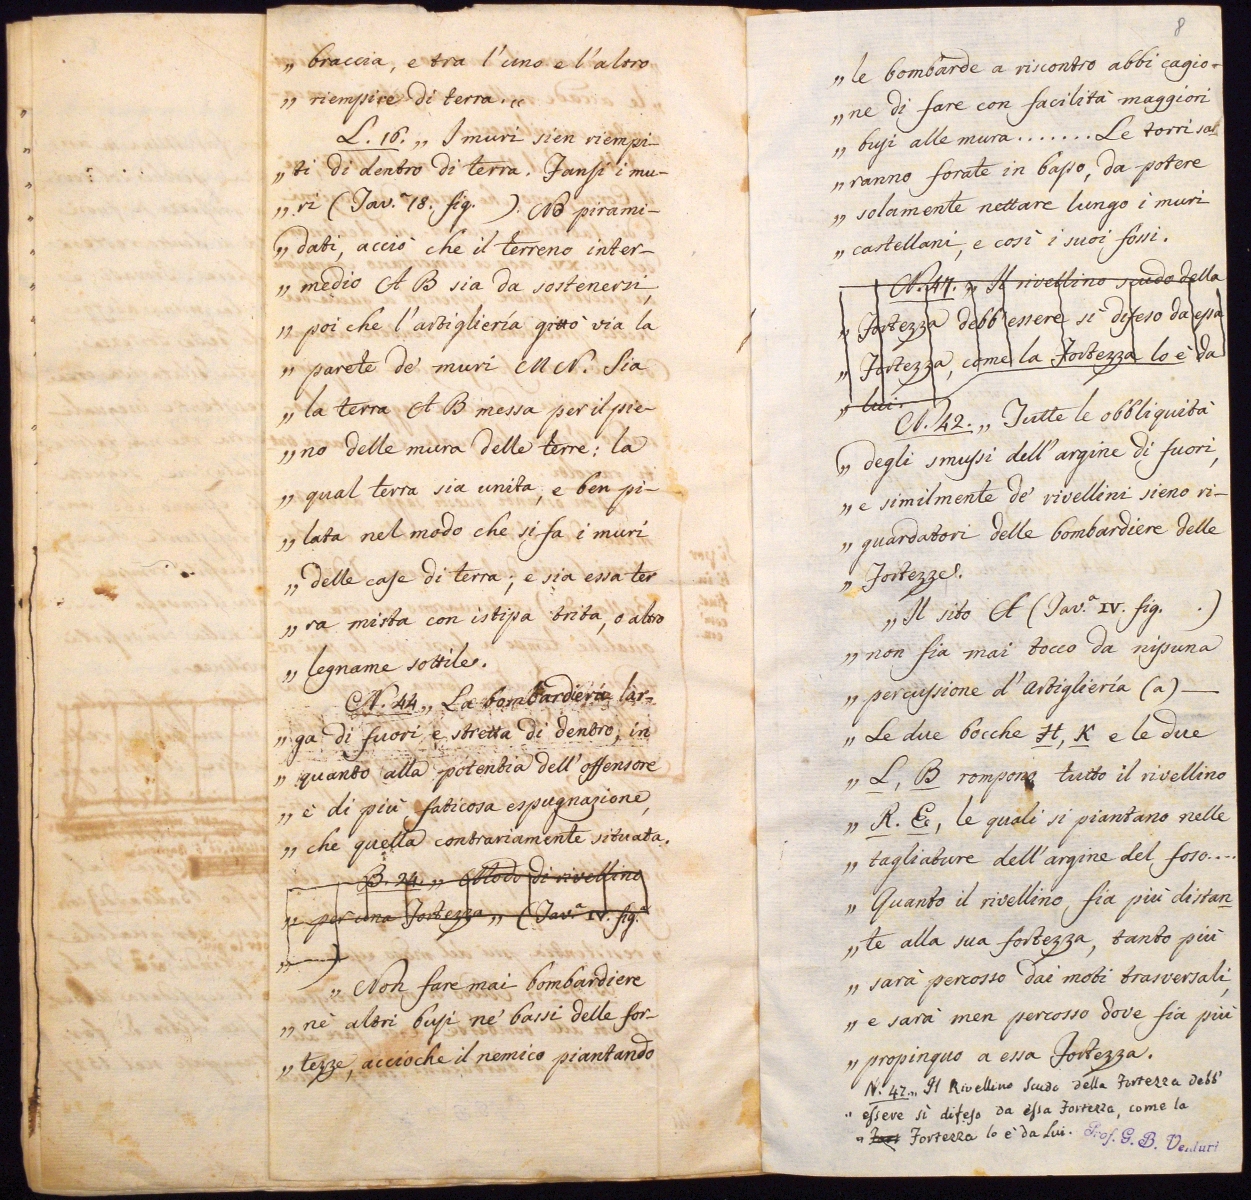 „ braccia, e tra l'uno e l'altro
„ riempire di terra.„
L. 16. „ I muri sien riempi-
„ ti di dentro di terra. Fansi i mu-
„ ri (Tav.ª 18. fig. ). NB pirami-
„ dati, acciò che il terreno inter-
„ medio A B sia da sostenersi,
„ poi che l'artiglieria gittò via la
„ parete de' muri M N. Sia
„ la terra A B messa per il pie-
„ no delle mura delle terre: la
„ qual terra sia unita, e ben pi-
„ lata nel modo che si fa i muri
„ delle case di terra; e sia essa ter
„ ra mista con istipa trita, o altro
„ legname sottile.
N. 44 „ La bombardiera lar-
„ ga di fuori e stretta di dentro, in
„ quanto alla potentia dell'offensore
„ è di più faticosa espugnazione,
„ che quella contrariamente situata.
B. 24. „ Modo di rivellino
„ per una Fortezza „ (Tav.ª IV. fig.ª
„ )
„ Non fare mai bombardiere
„ nè altri busi ne' bassi delle for-
„ tezze, accioche il nemico piantando
8
„ le bombarde a riscontro abbi cagio-
„ ne di fare con facilità maggiori
„ busi alle mura ....... Le torri sa-
„ ranno forate in basso, da potere
„ solamente nettare lungo i muri
„ castellani, e così i suoi fossi.
N. 47. „ Il rivellino scudo della
„ Fortezza debb'essere sì difeso da essa
„ Fortezza, come la Fortezza lo è da
„ lui.
N. 42. „ Tutte le obbliquità
„ degli smussi dell'argine di fuori,
„ e similmente de' rivellini sieno ri-
„ guardatori delle bombardiere delle
„ Fortezze.
„ Il sito A (Tav.ª IV. fig. .)
„ non sia mai tocco da nissuna
„ percussione d'Artiglieria (a) —
„ Le due bocche H, K e le due
„ L, B rompono tutto il rivellino
„ R. E, le quali si piantano nelle
„ tagliature dell'argine del foso....
„ Quanto il rivellino fia più distan
„ te alla sua fortezza, tanto più
„ sarà percosso dai moti trasversali,
„ e sarà men percosso dove fia più
„ propinquo a essa Fortezza.
N. 47.„ Il Rivellino Scudo della Fortezza debb'
„ essere sì difeso da essa Fortezza, come la
„ Fort Fortezza lo è da Lui. Prof. G. B. Venturi